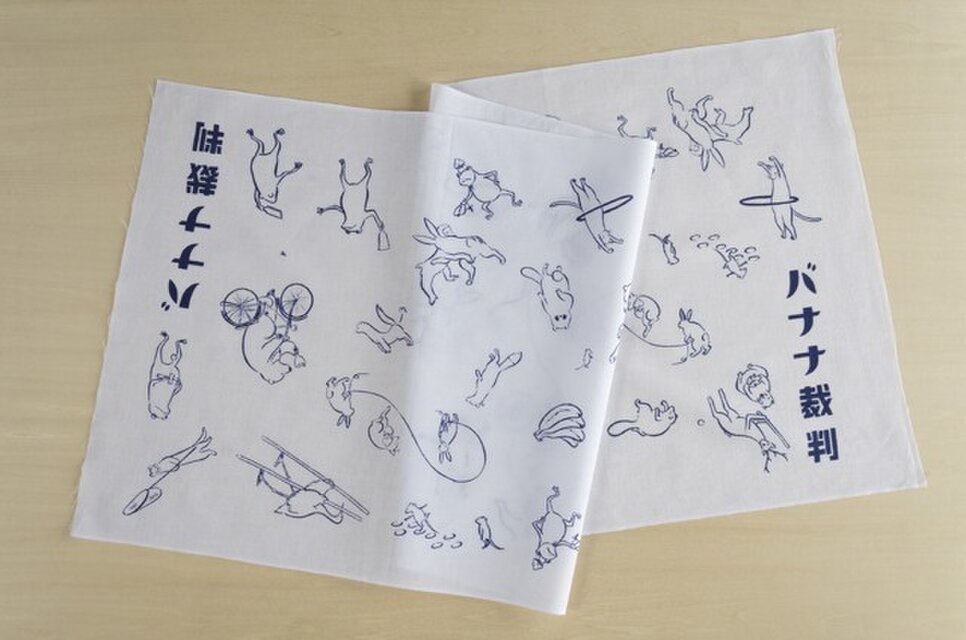 バナナ裁判
バナナ裁判